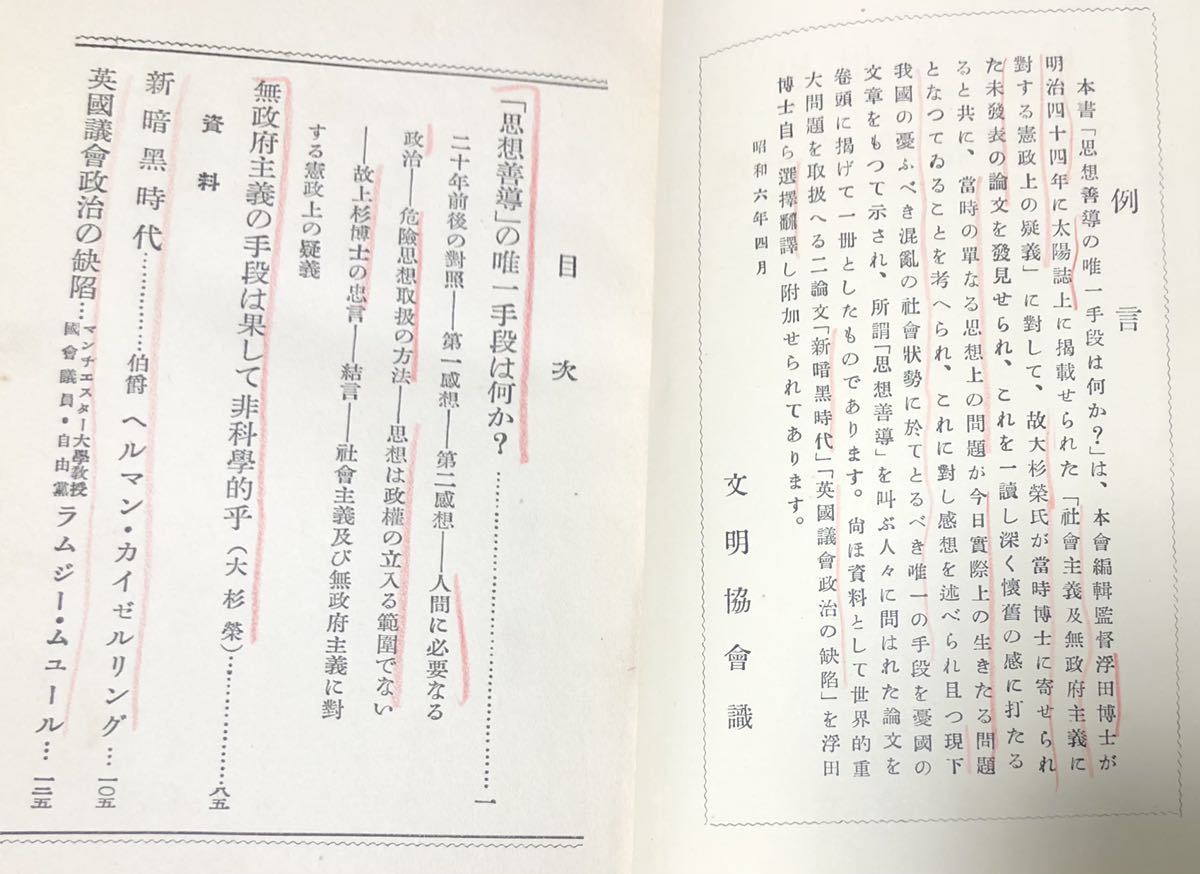 例言
本書「思想善導の唯一手段は何か?」は、本會編輯監督浮田博士が
明治四十四年に太陽誌上に揭載せられた「社會主義及無政府主義に
對する憲政上の疑義」に對して、故大杉榮氏が當時博士に寄せられ
た未發表の論文を發見せられ、これを一讀し深く懷舊の感に打たる
ると共に、當時の單なる思想上の問題が今日實際上の生きたる問題
となつてゐることを考へられ、これに對し感想を述べられ且つ現下
我國の憂ふべき混亂の社會狀勢に於てとるべき唯一の手段を憂國の
文章をもつて示され、所謂「思想善導」を叫ぶ人々に問はれた論文を
卷頭に揭げて一冊としたものであります。尙ほ資料として世界的重
大問題を取扱へる二論文「新暗黑時代」「英國議會政治の缺陷」を浮田
博士自ら選擇飜譯し附加せられてあります。
昭和六年四月
文明協會識
目次
「思想善導」の唯一手段は何か?……………………一
二十年前後の對照――第一感想――第二感想――人間に必要なる
政治――危險思想取扱の方法――思想は政權の立入る範圍でない
――故上杉博士の忠言――結言――社會主義及び無政府主義に對
する憲政上の疑義
無政府主義の手段は果して非科學的乎(大杉榮)……………八五
資料
新暗黑時代……………伯爵 ヘルマン・カイゼルリング…一〇五
英國議會政治の缺陷…マンチエスター大學敎授 國會議員・自由黨 ラムジー・ムユール…一二五